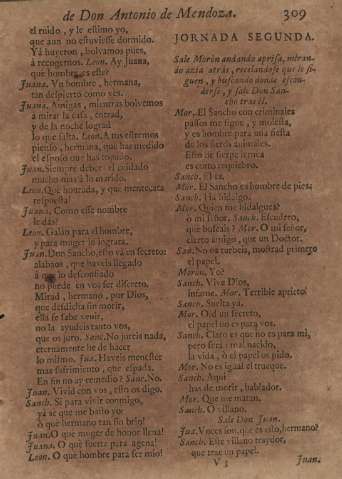 de Don Antonio de Mendoza. 309
el ruido, y le estimo yo,
que aun no estuviesse dormido.
Yà huyeron, bolvamos pues,
à recogernos. Leon. Ay, Juana,
què hombre es este?
Juana. Un hombre, hermana,
tan despierto como ves.
Juana. Amigas, mientras bolvemos
à mirar la casa, entrad,
y de la noche lograd
lo que falta. Leon. A tus estremos
pienso, hermana, què has medido
el esposo que has tenido.
Juan. Siempre deber el cuidado
mucho mas à lo marido.
Leon. Què honrada, y què mentecata
respuesta!
Juana. Como esse nombre
le dàs?
Leon. Galàn para el hombre,
y para muger lo ingrata.
Juan. Don Sancho, esto và en secreto:
alabaos, que haveis llegado
à que lo desconfiado
no puede en vos ser discreto.
Mirad, hermano, por Dios,
que desdicha sin morir,
ella se sabe venir,
no la ayudeis tanto vos,
que os juro. Sanc. No jureis nada,
eternamente he de hacer
lo mismo. Jua. Haveis menester
mas sufrimiento, que espada.
En fin no ay remedio? Sanc. No.
Juan. Vivid con vos, esto os digo.
Sanch. Si para vivir conmigo,
yà sè que me basto yo:
ò què hermano tan sin brio!
Juan. O què muger de honor llena!
Juana. O què suerte para agena!
Leon. O què hombre para ser mio!
JORNADA SEGUNDA.
Sale Moròn andando aprisa, miran-
do azia atràs, recelandose que le si-
guen, y buscando donde escon-
derse, y sale Don San-
cho tras èl.
Mor. El Sancho con criminales
passos me sigue, y molesta,
y es hombre para una fiesta
de los fieros animales.
Esto de sierpe tenca
es corto requiebro.
Sanch. El es.
Mor. El Sancho es hombre de pies:
Sanch. Ha hidalgo.
Mor. Quien me hidalguea?
ò mi señor. Sanch. Escudero,
què buscais? Mor. O mi señor,
cierto amigo, que un Doctor.
San. No os turbeis, mostrad primero
el papel.
Moròn. Yo?
Sanch. Vive Dios,
infame. Mor. Terrible aprieto!
Sanch. Suelta ya.
Mor. Oìd un secreto,
el papel no es para vos.
Sanch. Claro es que no es para mi,
pero serà, mal nacido,
la vida, ò el papel os pido.
Mor. No es igual el trueque.
Sanch. Aqui
has de morir, hablador.
Mor. Que me matan.
Sanch. O villano.
Sale Don Juan.
Jua. Voces son, què es esto, hermano?
Sanch. Este villano traydor,
que trae un papel.
V 3 Juan.